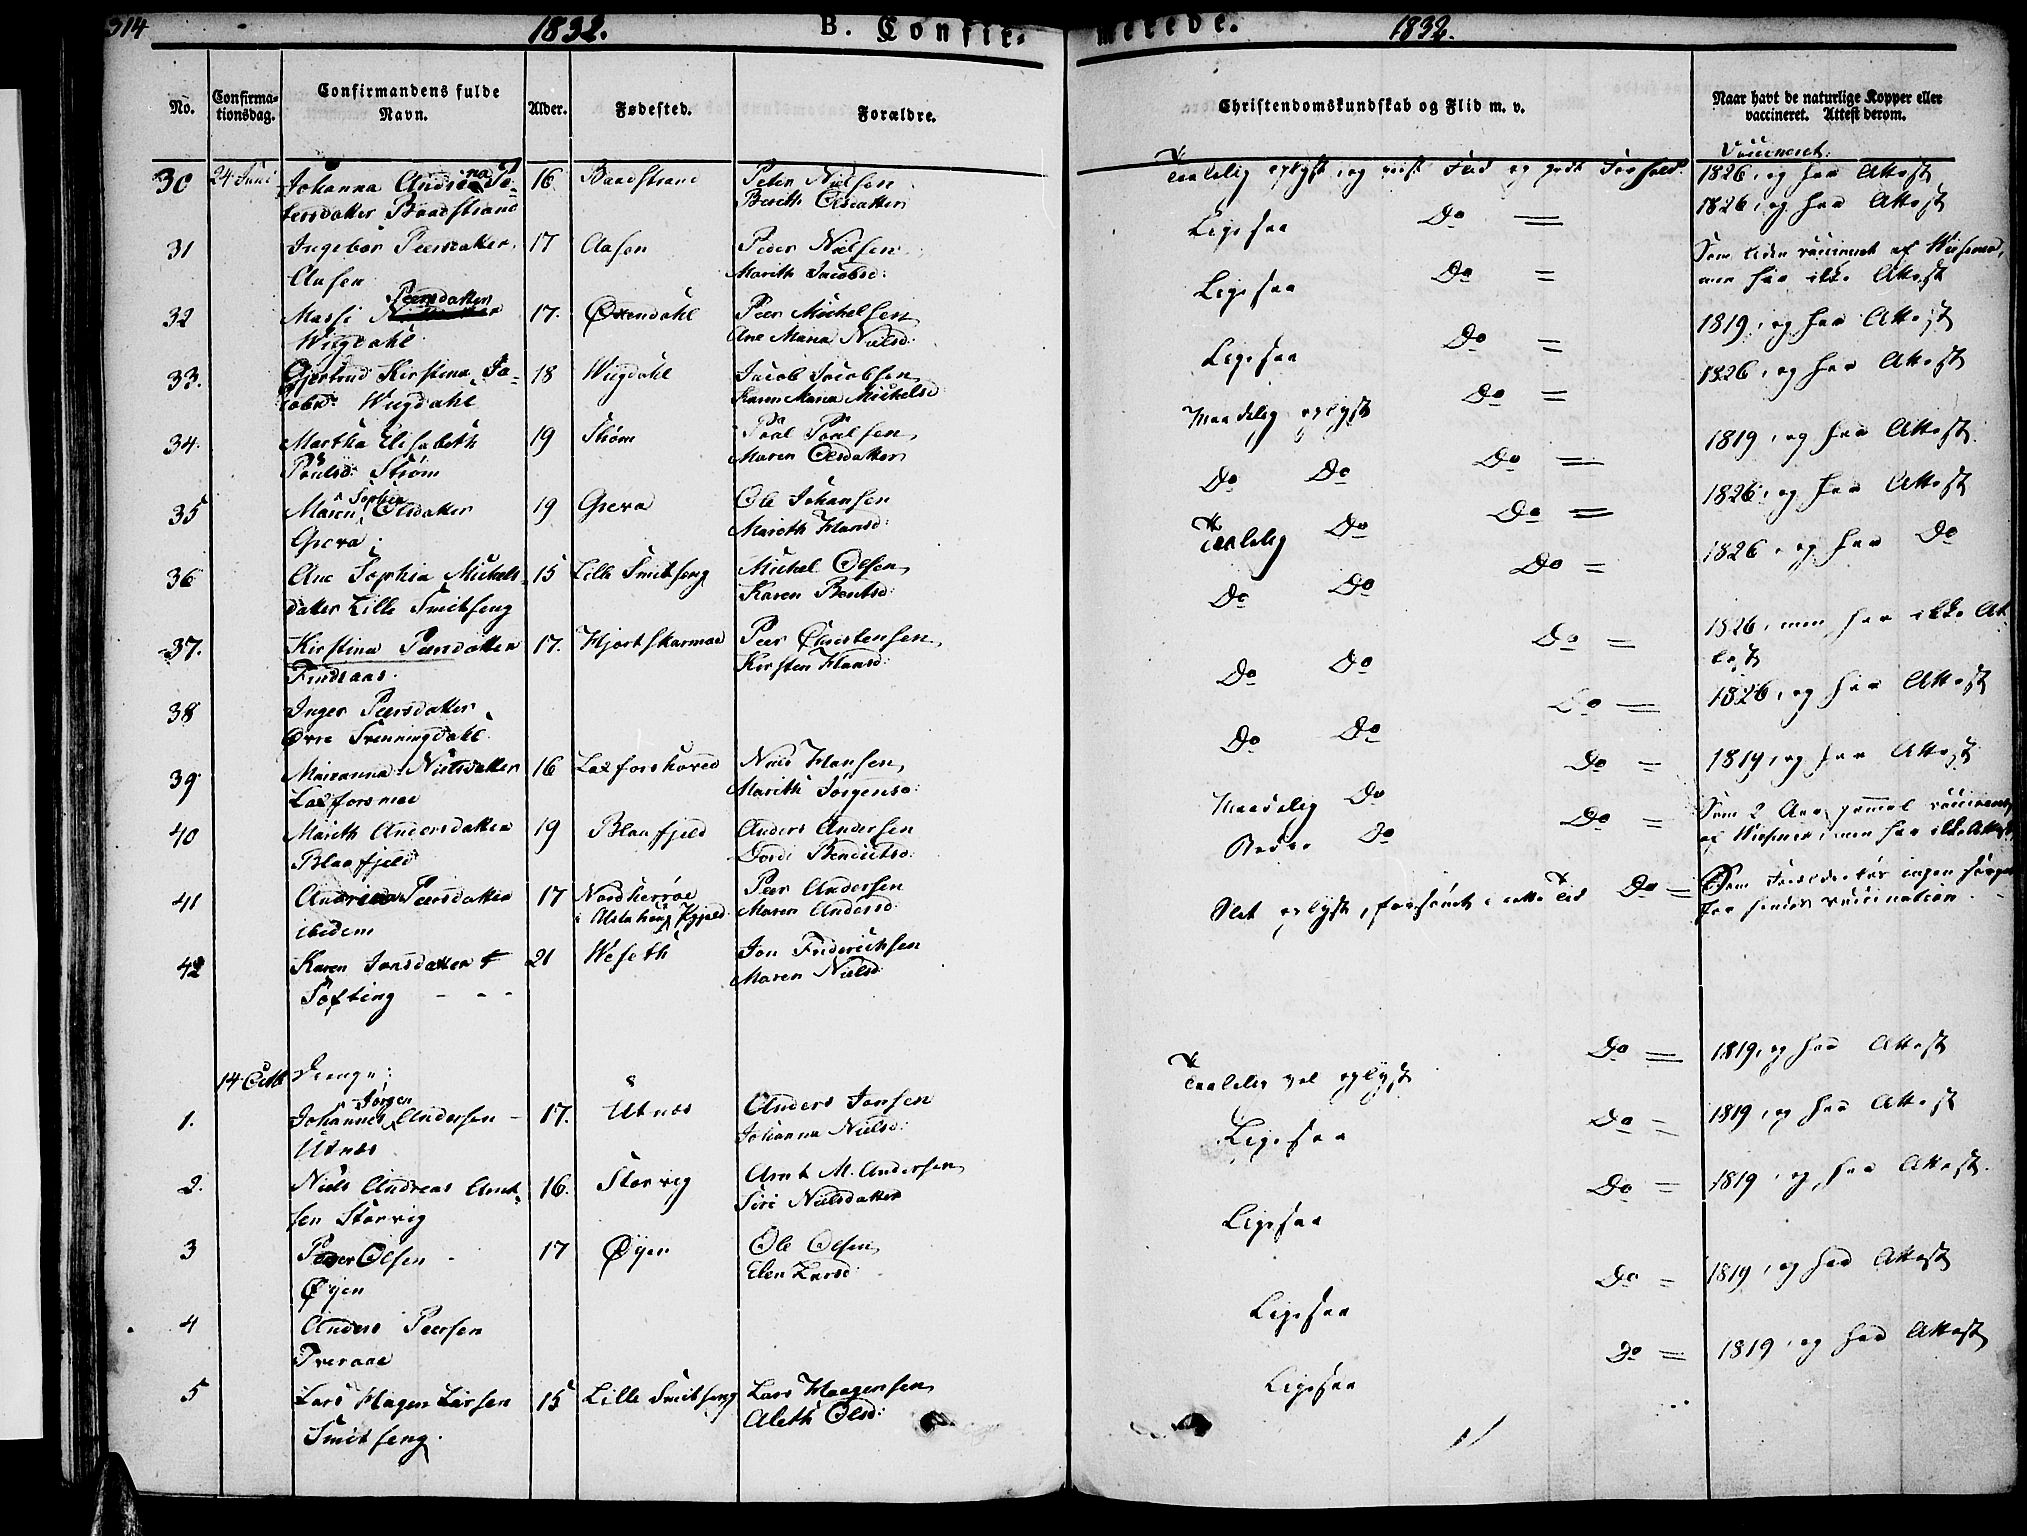 314
1832.
B. Confir-
merede.
1832.
No.
Confirma-
tionsdag.
Confirmandens fulde
Navn.
Alder.
Fødested.
Forældre.
Christendomskundskab og Flid m. v.
Naar havt de naturlige Kopper eller
vaccineret. Attest derom.
Vaccineret:
30 24 Juni Johanna Andrea Pe- 16 Baadstrand Peter Nielsen
tersdatter Baadstrand Berith Olsdatter
Taalelig oplyst, og viist Flid og godt Forhold. 1826, og har Attest
31 Ingebor Peersdatter 17 Aasen Peder Nielsen
Aasen Marith Jacobsd:
Ligesaa Do = 1826, og har Attest
32 Massi Peersdatter 17. Øxendahl Peer Michelsen
Wiigdahl Ane Maria Nielsd:
Ligesaa Do = Som liden vaccineret af
men har ikke Attest
33. Gjertrud Kirstina Ja- 18 Wiigdahl Jacob Jacobsen
cobsd: Wiigdahl Karen Maria Mickelsd
Ligesaa Do = 1819, og har Attest
34. Martha Elisabeth 19 Strøm Paal Paalsen
Paulsd: Strøm Maren Olsdatter
Maadelig oplyst Do = 1826, og har Attest
35 Maren Sophia Olsdatter 19 Greva Ole Johansen
Greva Marith Hansd:
Do Do Do = 1819, og har Attest
36 Ane Sophia Mickels- 15 Lille Smitseng Mickel Olsen
datter Lille Smitseng Karen Bentsd:
Taalelig Do Do = 1826, og har Attest
37. Kirstina Peersdatter 17. Hjortskarmoe Peer Christensen
Findsaas. Kirsten Hansd:
Do Do Do = 1826, og har Do
38 Inger Peersdatter
Øvre Svenningdahl
Do Do Do = 1826, men har ikke At-
test
39 Marianna Nielsdatter 16 Laxforshoved Niels Hansen
Laxforsmoe Marith Jørgensd:
Do Do Do = 1826, og har Attest
40 Marith Andersdatter 19 Blaafjeld Anders Andersen
Blaafjeld Dordi Bendictsd:
Maadelig Do Do = 1819, og har Attest
41 Andrina Peersdatter 17 Nordherrøe Peer Andersen
ibidem i Alstahoug Gjeld Maren Andersd:
Do Do = Som 2 Aar gammel vaccineret
men har ikke Attest
42 Karen Jonsdatter 21 Weseth Jon Friderichsen
Tofting - - - Maren Nielsd
Slet oplyst, forsømt Do = Som
vaccination
14 Octbr Drenge:
1. Johannes Jørgen Andersen - 17. Utnæs Anders Jonsen
Utnæs Johanna Nielsd:
Taalelig vel oplyst Do = 1819, og har Attest
2. Niels Andreas Arnt- 16. Storvig Arnt M. Andersen
sen Storvig Siri Nielsdatter
Ligesaa Do = 1819, og har Attest
3 Peder Olsen - 17 Øyen Ole Olsen
Øyen Elen Larsd:
Ligesaa Do = 1819, og har Attest
4 Anders Peersen
Tveraae
Ligesaa Do = 1819, og har Attest
5 Lars Hagen Larsen 15 Lille Smitseng Lars Haagensen
Smitseng. Aleth Olsd:
Ligesaa Do = 1819, og har Attest